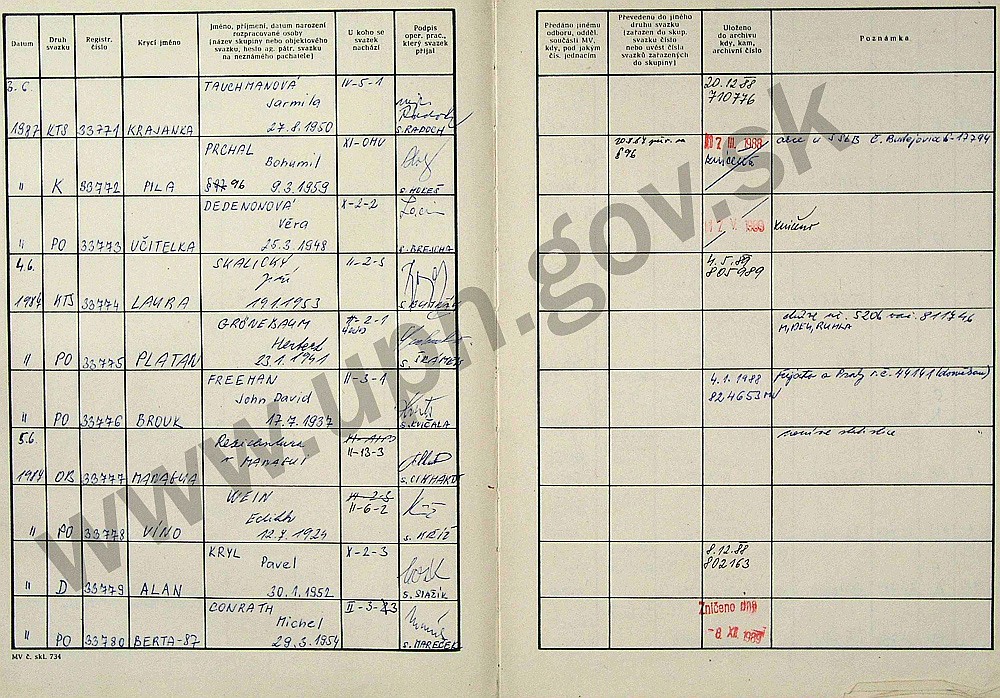 Datum
Druh svazku
Registr. číslo
Krycí jméno
Jméno, příjmení, datum narození
rozpracované osoby
(název skupiny nebo objektového
svazku, heslo ag. pátr. svazku
na neznámého pachatele)
U koho se
svazek
nachází
Podpis
oper. prac.,
který svazek
přijal
Předáno jinému
odboru, odděl.
součásti MV,
kdy, pod jakým
čís. jednacím
Převedeno do jiného
druhu svazku
(zařazen do skup.
svazku číslo
nebo uvést čísla
svazků zařazených
do skupiny)
Uloženo
do archivu
kdy, kam,
archivní číslo
Poznámka
3.6. TAUCHMANOVÁ IV-5-1 20.12.88
Jarmila 710776
1987 KTS 33771 KRAJANKA 27.8.1950 S.RADOCH
PRCHAL XI-OMV 7 III. 1988
Bohumil § 96
" K 33772 PILA 96 9.3.1959 S.HULEŠ
DEDENONOVÁ X-2-2
Věra
" PO 33773 UČITELKA 25.3.1948 S.BREJCHA
4.6. SKALICKÝ II-2-3 4.5.89
Jiří 805989
1987 KTS 33774 LAURA 19.1.1953
GRÖNEBAUM II-2-1 5206 811746
Herbert
" PO 33775 PLATAN 23.1.1941 S. ŠRÁMEK
FREEMAN II-3-1 4.1.1988
John David 824653 MV
" PO 33776 BROUK 17.7.1937 S.KVIČALA
5.6. Rezidentura
v MANAGUI II-13-3
1987 OB 33777 MANAGUA
WEIN II-2-3
II-6-2
" PO 33778 VÍNO 12.7.1924 S. KŘÍŽ
KRYL X-2-3 8.12.88
Pavel 802163
" D 33779 ALAN 30.1.1952
CONRATH II-3-3 Zničeno dne
Michel -8. XII. 1989
" PO 33780 BERTA-87 29.3.1954 S.MAREČEK
MV č. skl. 734
www.upn.gov.sk